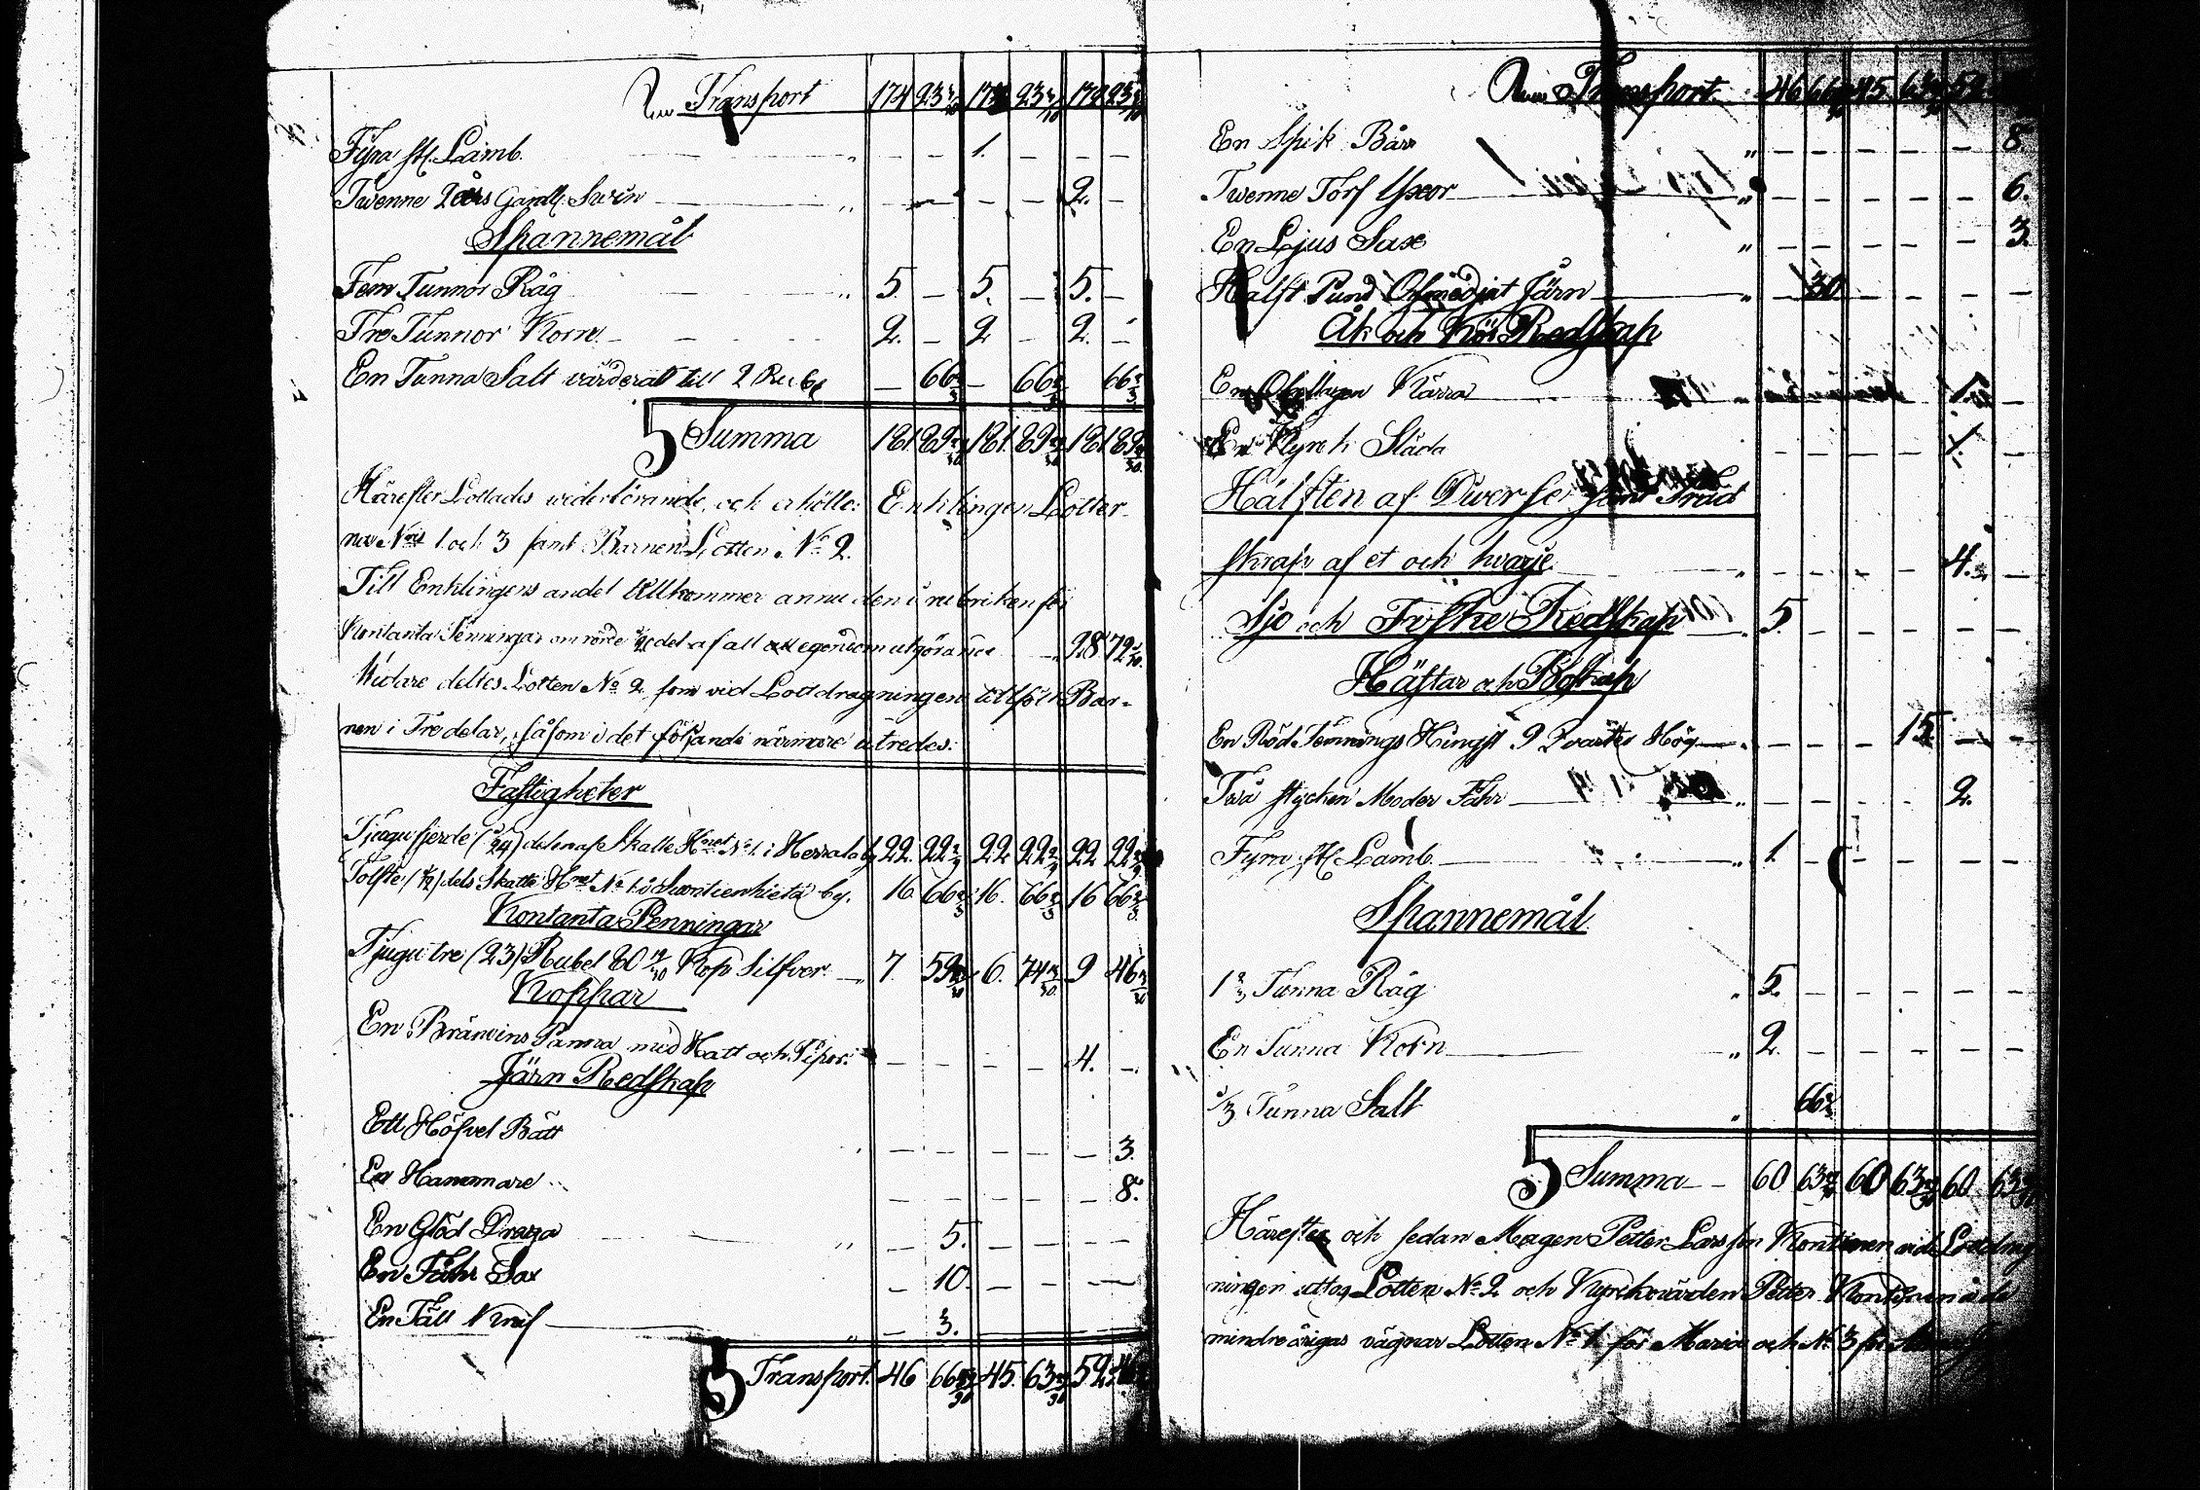 Transport 174 23 3/10 174 23 3/10 174 23 3/10
Fyra st. Lamb. " — — 1. — — —
Twenne 2 års Gamll. Swin " — — — — 2. —
Spannemål
Fem Tunnor Råg " 5. — 5. — 5. —
Tre Tunnor Korn. 2. — 2 — 2. —
En Tunna Salt värderatt till 2 Rub. — 66 2/3 — 66 2/3 66 2/3
Summa 181. 89 29/30 181. 89 29/30 181 89 29/30
Härefter Lottades wederbörande, och erhölle: Enklingen Lotter-
na Nris 1. och 3 samt Barnen Lotten No 2.
Till Enklingens andel tillkommer annu den i rubriken för
Kontanta Penningar om rörde del af all egendom utgörande 28 72
Widare deltes Lotten No 2. som vid Lottdragningen tillföll Bar-
nen i Tre delar, såsom i det följande närmare utredes:
Fastigheter
Tjugufjerde (1/24) delen af Skatte Hmet No 1. i Herrala by 22. 22 2/9 22 22 2/9 22 22 2/9
Tolfte (1/12) dels Skatte Hmet No 1. i by. 16 66 2/3 16. 66 2/3 16 66 2/3
Kontanta Penningar
Tjugutre (23) Rubel 80 Kop Silfver. 7. 59 6. 74 9 46
Koppar
En Bränvins Panna med Hatt och Pipor: — — — — 4. —
Järn Redskap
Ett Höfvel Bätt — — — — — 3.
En Hammare — — — — — 8.
En Glöd Draga " — 5. — — — —
En Fåhr Sax — 10. — — — —
En Täll Knif " — 3.
Transport. 46 66 45. 63 52.
Transport. 46 66 45 63 52
En Spik Bårr " — — — — — 8.
Twenne Torf Yxor " — — — — — 6.
En Ljus Sax " — — — — — 3.
Hälft Pund Osmidjat Järn " — 30 — — — —
Åk och Kör Redskap
En Kärra " 1. —
En Kyrck Släda — — — — 1. —
Hälften af Diverse samt Träd
skrap af et och hvarje " — — — — 4. —
Sjö och Fiske Redskap " 5. — — — — —
Hästar och Boskap
En Röd Hingst 9 Qvarter Hög " — — — 15. — —
Två stycken Moder Fåhr " — — — — 2. —
Fyra st. Lamb. " 1. — — — —
Spannemål
1 2/3 Tunna Råg " 5. — — — — —
En Tunna Korn " 2. — — — — —
1/3 Tunna Salt " 66 2/3
Summa 60 63 60 63 60 63
Härefter och sedan Magen Petter Larsson Kontinen vid
ningen uttog Lotten No 2 och Kyrckovärden Petter Kontinen å de
mindreårigas vägnar Lotten No 1 för Maria och No 3 för